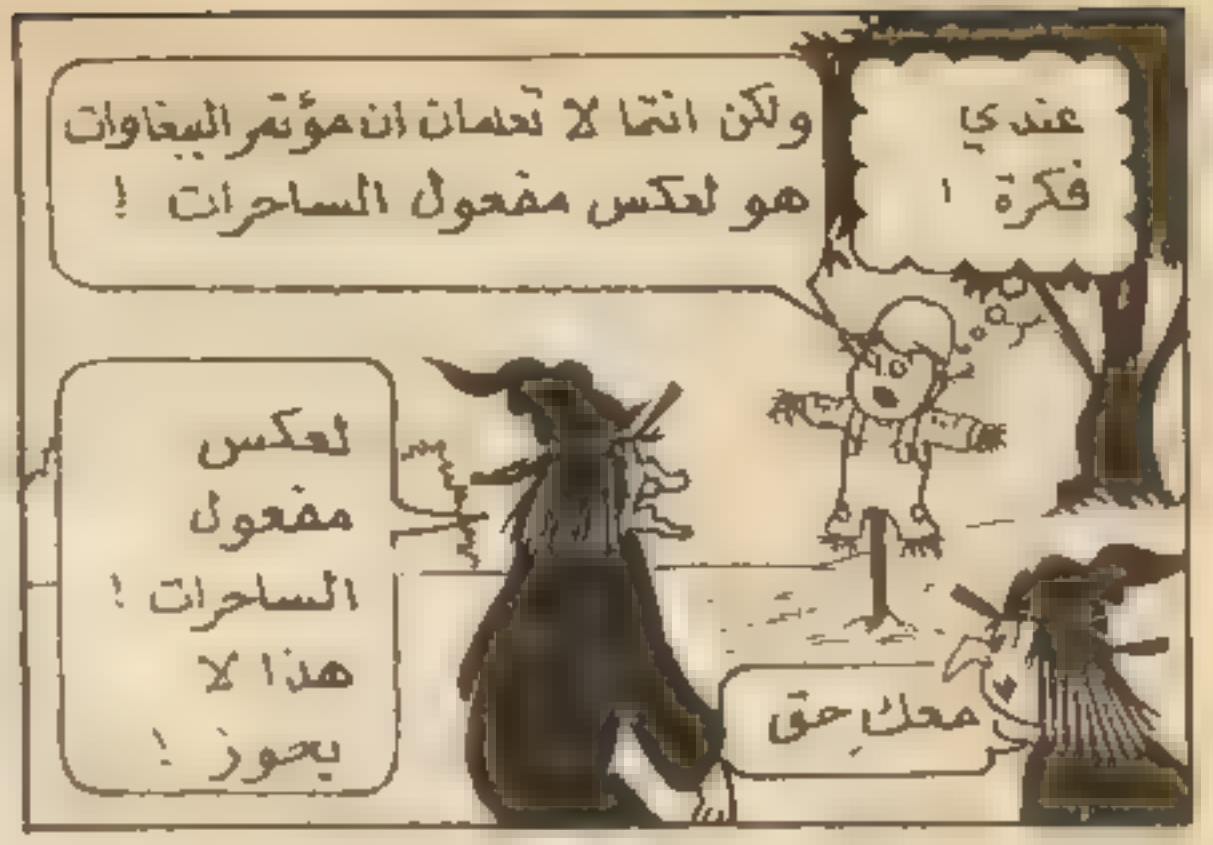 عندي
فكرة !
ولكن انتما لا تعلمان ان مؤتمر الببغاوات
هو لعكس مفعول الساحرات !
لعكس
مفعول
الساحرات !
هذا لا
يجوز !
معك حق